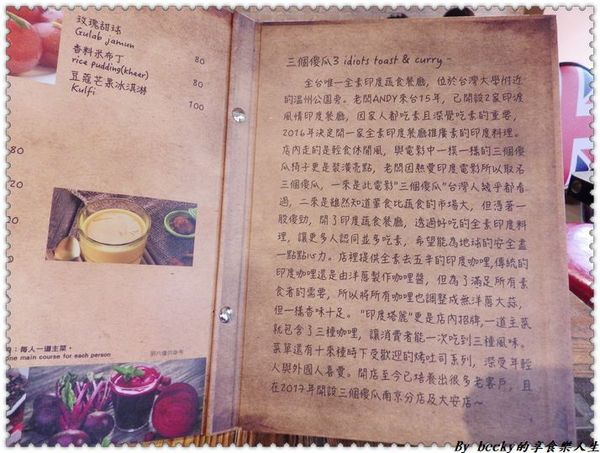 玫瑰甜球
Gulab jamun 80
香料米布丁
rice pudding(kheer) 80
豆蔻芒果冰淇淋
Kulfi 100
80
20
每人一道主菜。
one main course for each person
照片僅供參考
三個傻瓜3 idiots toast & curry~
全台唯一全素印度蔬食餐廳，位於台灣大學附近
的溫州公園旁。老闆ANDY來台15年，已開設2家印渡
風情印度餐廳，因家人都吃素且深覺吃素的重要，
2016年決定開一家全素印度餐廳推廣素的印度料理。
店內走的是輕食休閒風，與電影中一模一樣的三個傻
瓜椅子更是裝潢亮點，老闆因熱愛印度電影所以取名
三個傻瓜，一來是此電影"三個傻瓜"台灣人幾乎都看
過，二來是雖然知道葷食比蔬食的市場大，但憑著一
股傻勁，開了印度蔬食餐廳，透過好吃的全素印度料
理，讓更多人認同並多吃素，希望能為地球的安全盡
一點點心力。店裡提供全素去五辛的印度咖哩,傳統的
印度咖哩還是由洋蔥製作咖哩醬，但為了滿足所有素
食者的需要，所以將所有咖哩也調整成無洋蔥大蒜，
但一樣香味十足。"印度塔麗"更是店內招牌,一道主菜
就包含了三種咖哩，讓消費者能一次吃到三種風味。
菜單還有十來種時下受歡迎的烤吐司系列，深受年輕
人與外國人喜愛。開店至今已培養出很多老客戶，且
在2017年開設三個傻瓜南京分店及大安店~
By bccky的享食樂人生